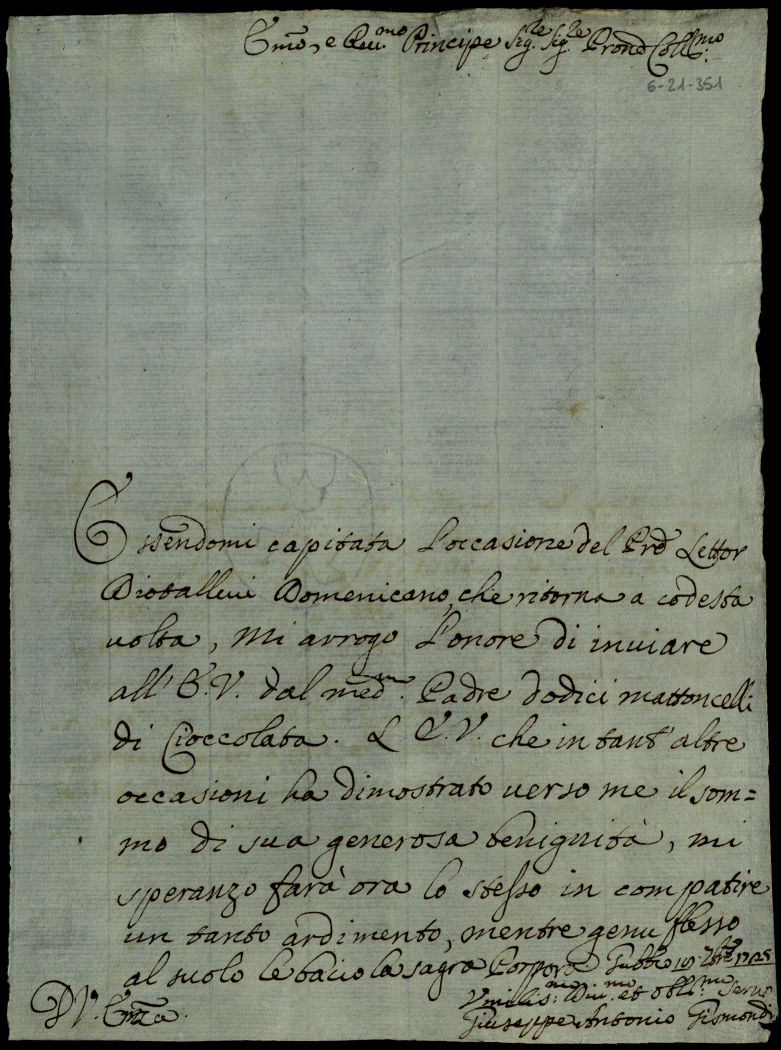 Emo, e Reu.mo Principe Sig.re Sig.re Prone Coll.mo
6-21-351
Essendomi capitata l'occasione del Pre Lettor
Diotalleui Domenicano, che ritorna a codesta
uolta, mi arrogo l'onore di inuiare
all' E.V. dal med.mo Padre dodici mattoncelli
di Cioccolata. L E.V. che in tant' altre
occasioni ha dimostrato uerso me il som=
mo di sua generosa benignità, mi
speranzo farà ora lo stesso in compatire
un tanto ardimento, mentre genuflesso
al suolo le bacio la sagra Porpora Gubbio
D V. Emza.
Vmiliss.mo Diu.mo et obll.mo Seruo
Giuseppe Antonio Gismondi